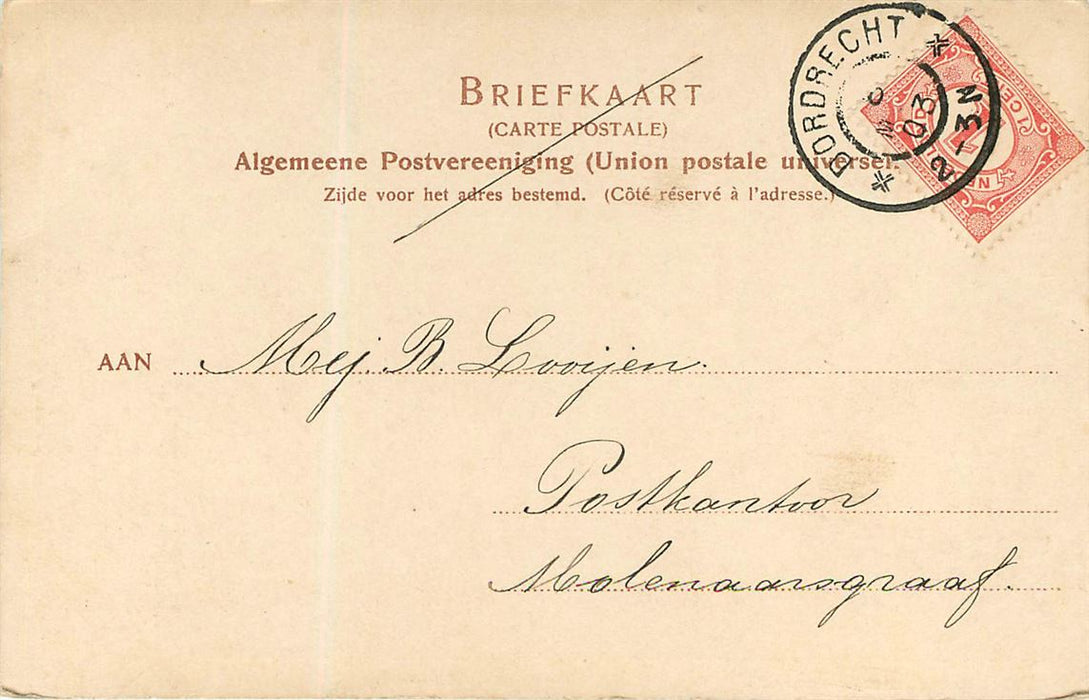 BRIEFKAART
(CARTE POSTALE)
Algemeene Postvereeniging (Union postale universel
Zijde voor het adres bestemd. (Côté réservé à l'adresse.)
DORDRECHT
03
2-3N
1 CE
AAN Mej. B. Looijen.
Postkantoor
Molenaarsgraaf.